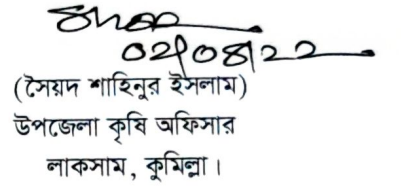 02/08/22
(সৈয়দ শাহিনুর ইসলাম)
উপজেলা কৃষি অফিসার
লাকসাম, কুমিল্লা।